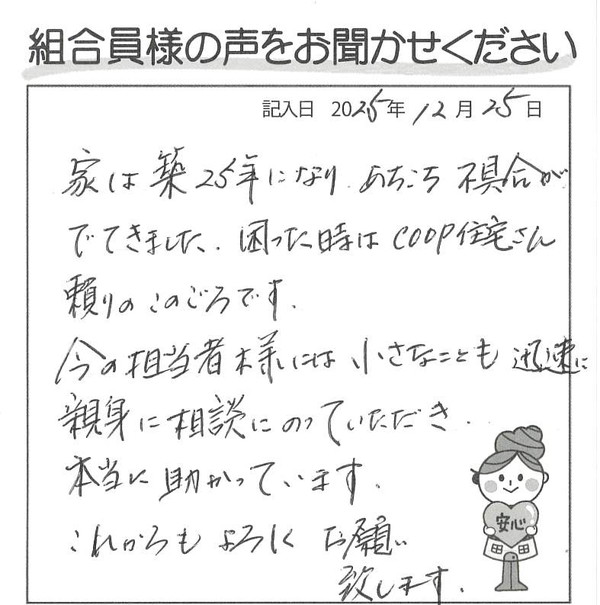 組合員様の声をお聞かせください
記入日 2025年 12月 25日
家は築25年になり、あちこち不具合が
でてきました、困った時はCOOP住宅さん
頼りのこのごろです、
今の担当者様には小さなことも迅速に
親身に相談にのっていただき、
本当に助かっています、
これからもよろしくお願い
致します、
安心